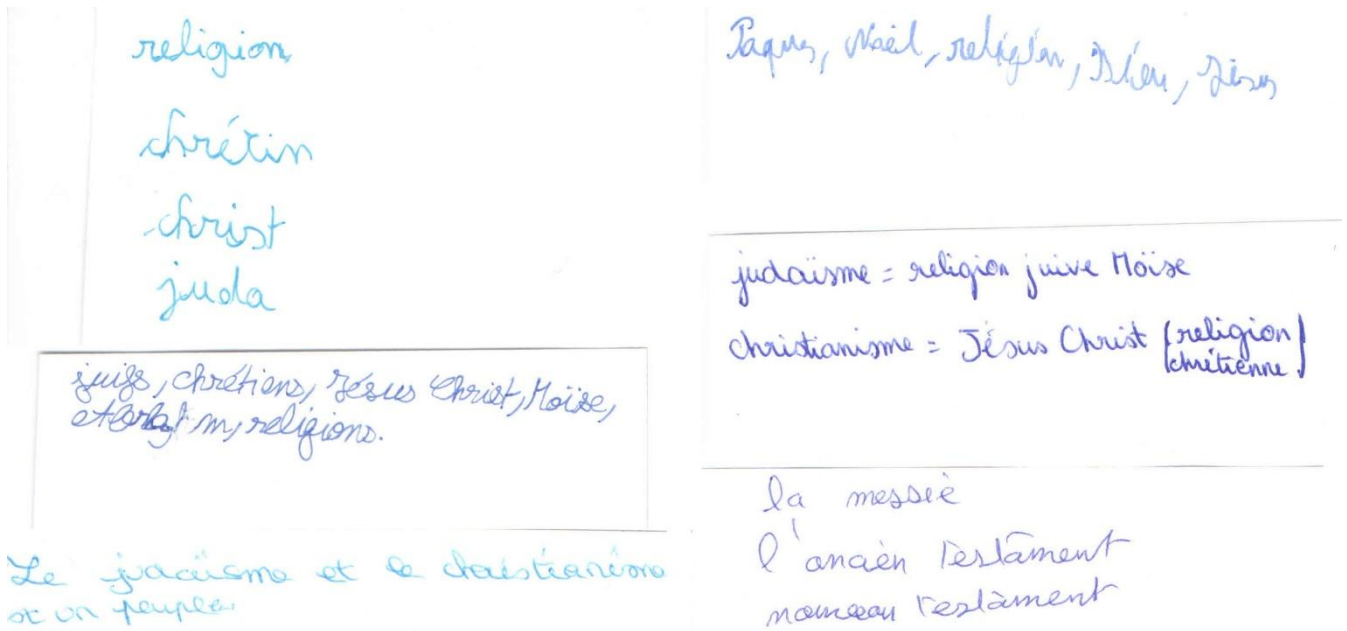 religion
chrétin
christ
juda
juifs, chrétiens, Jésus Christ, Moïse,
religions.
Le judaïsme et le christianisme
et un peuple
Paques, Noël, religion, Dieu, Jésus
judaïsme = religion juive Moïse
christianisme = Jésus Christ (religion
chrétienne)
la messie
l'ancien Testament
nouveau Testament